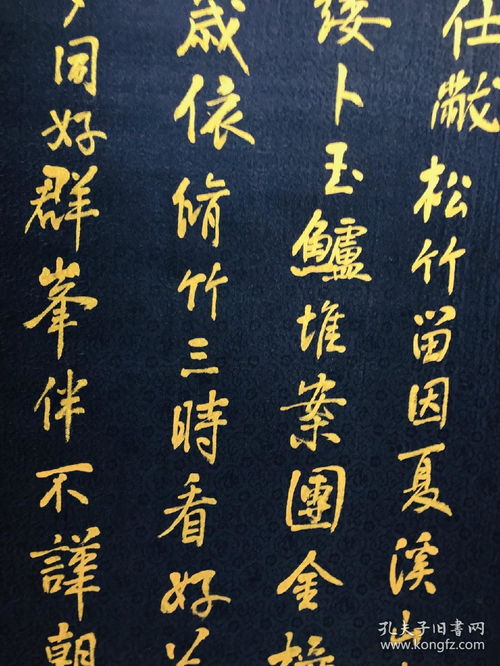 仕黻松竹留因夏溪山
縷卜玉鱸堆案團金橘
歲依脩竹三時看好
同好群峯伴不譁朝
孔夫子旧书网
www.kongfz.com